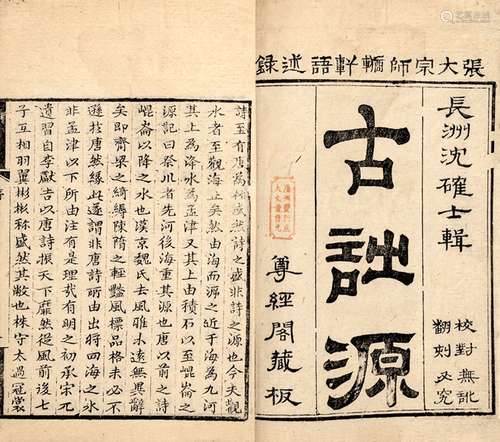 張大宗師輶軒語述録
長洲沈確士輯
校對無訛
翻刻必究
古詩源
尊經閣藏板
詩至有唐為極盛然詩之盛非詩之源也今夫觀
水者至觀海止矣然由海而溯之近于海為九河
其上為洚水為孟津又其上由積石以至崐崙之
源記曰祭川者先河後海重其源也唐以前之詩
崐崙以降之水也漢京魏氏去風雅未遠無異辭
矣即齊梁之綺縟陳隋之輕豔風標品格未必不
遜於唐然緣此遂謂非唐詩所由出將四海之水
非孟津以下所由注有是理哉有明之初承宋元
遺習自李獻吉以唐詩振天下靡然從風前後七
子互相羽翼彬彬稱盛然其敝也株守太過冠裳
序